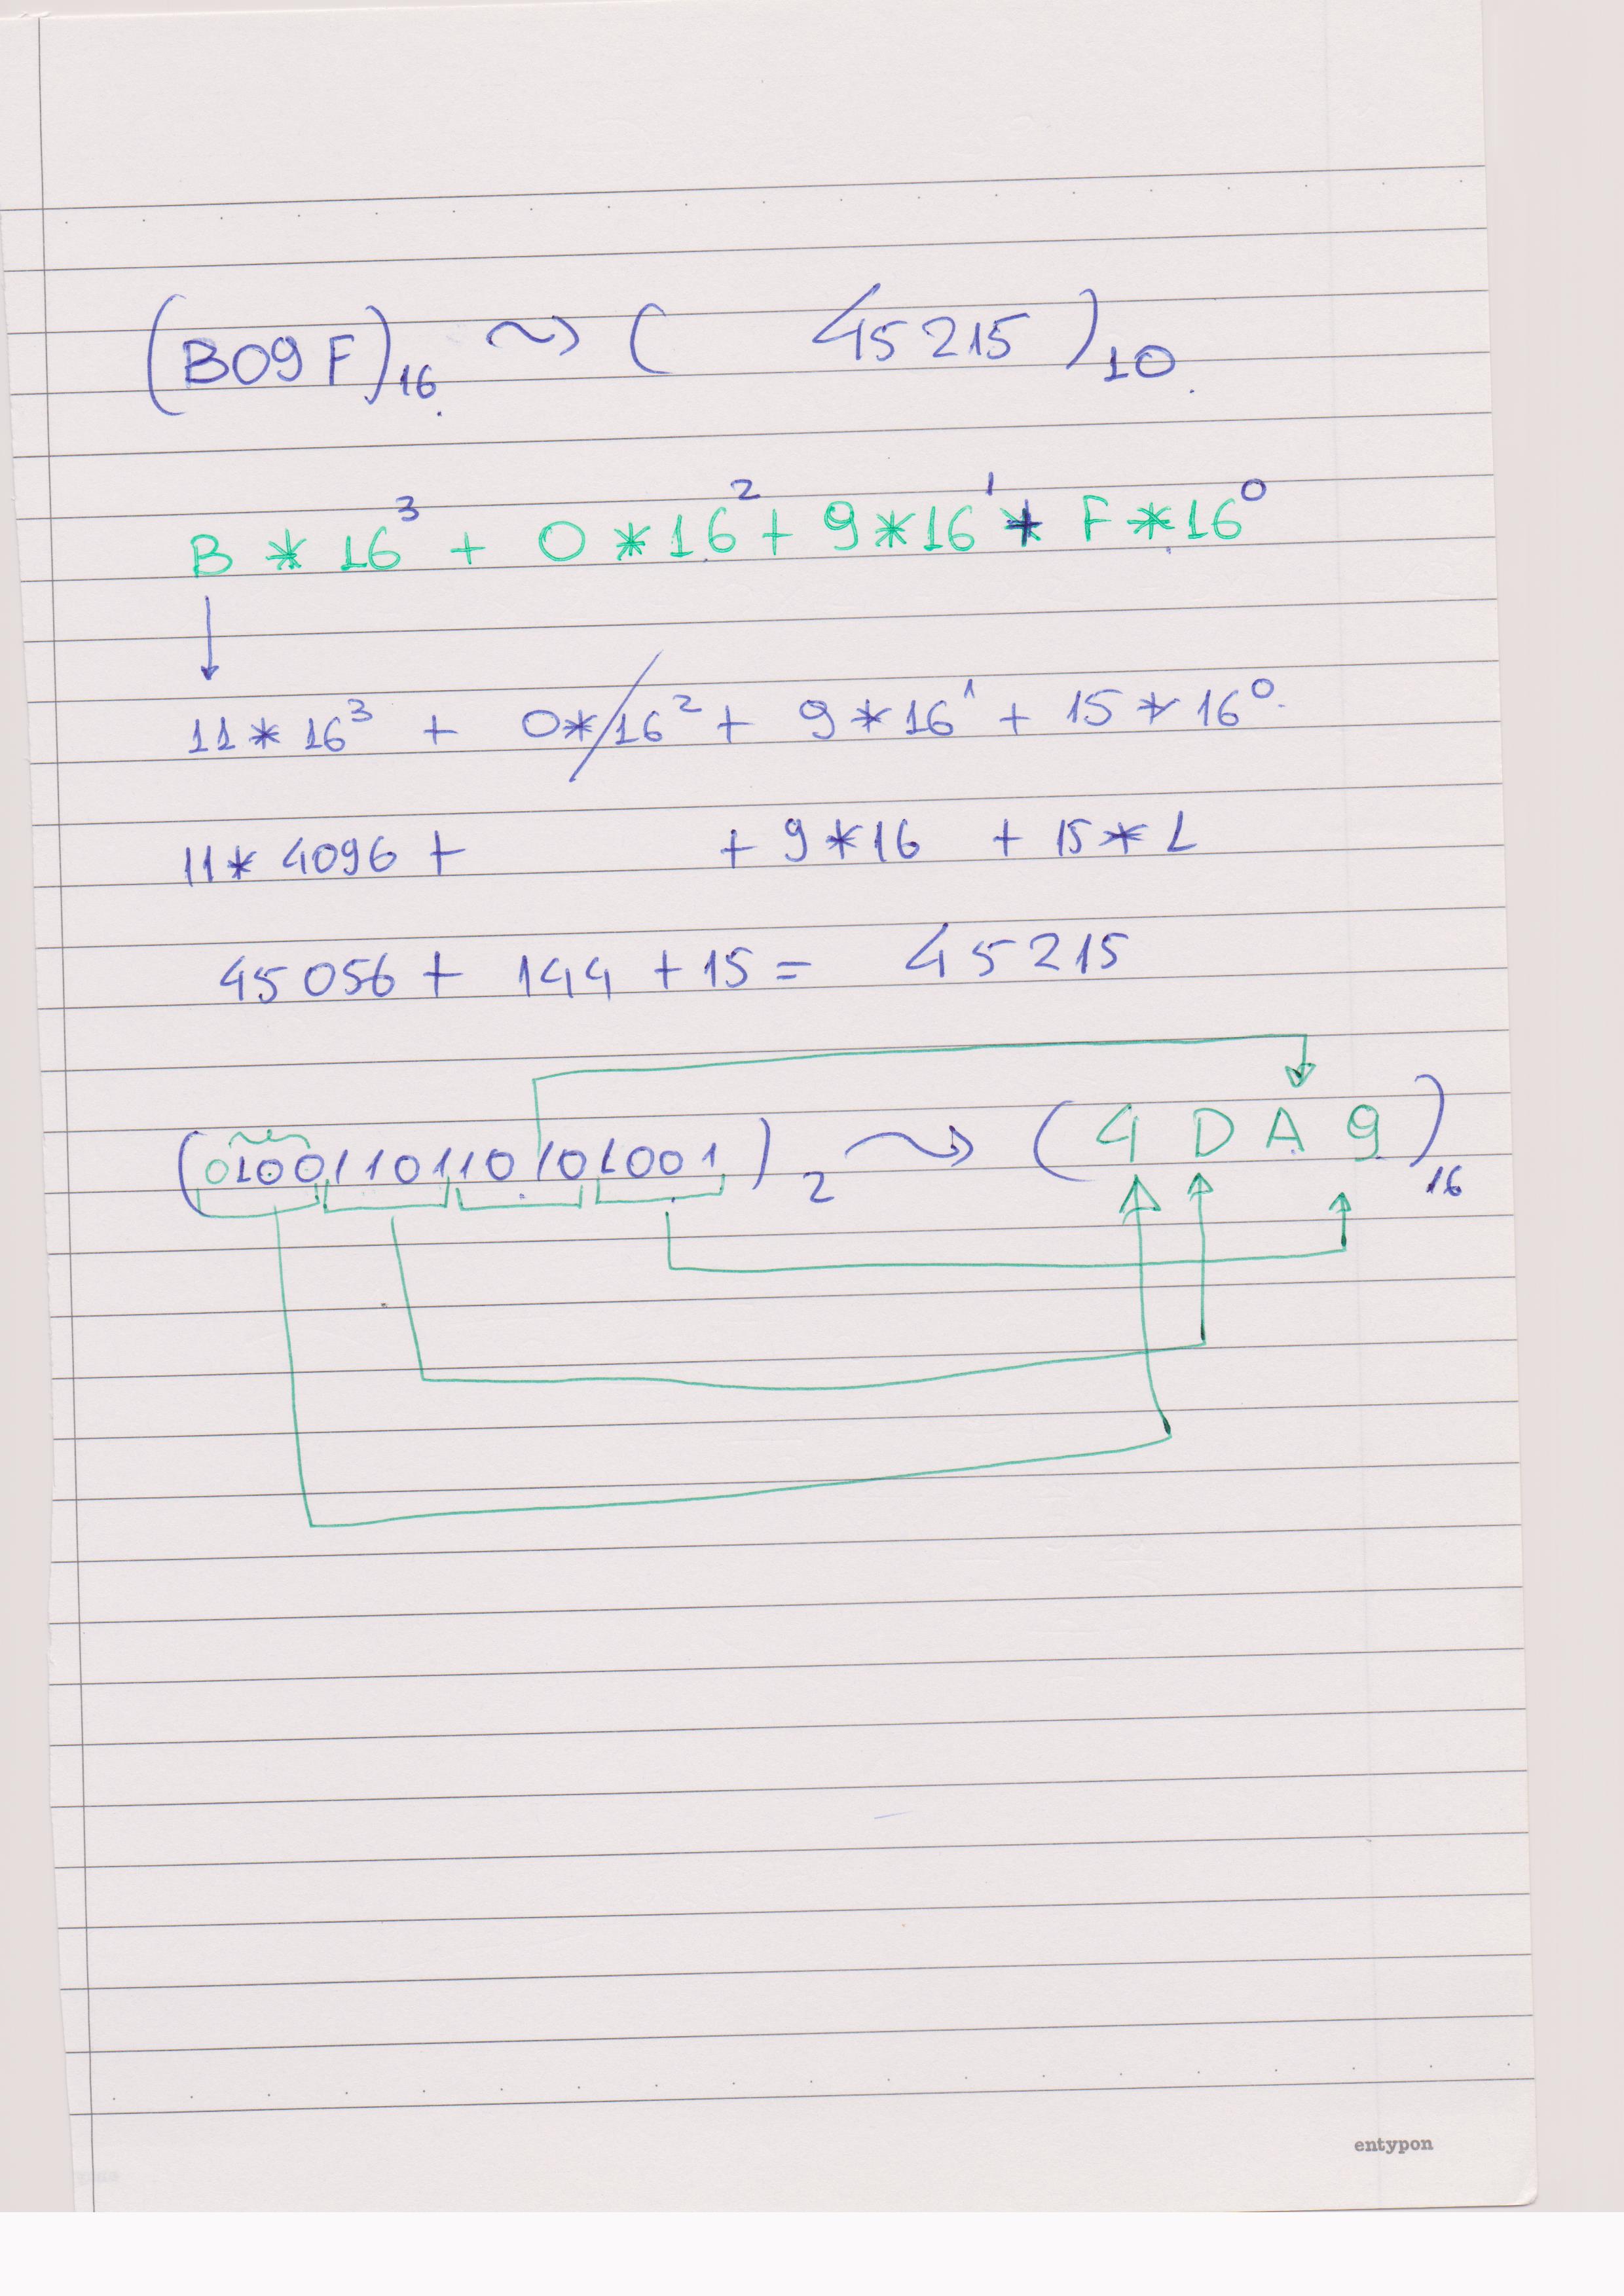 (B09F)₁₆ ⤳ ( 45215 )₁₀
B * 16³ + 0 * 16² + 9 * 16¹ + F * 16⁰
↓
11 * 16³ + 0 * 16² + 9 * 16¹ + 15 * 16⁰
11 * 4096 + + 9 * 16 + 15 * 1
45056 + 144 + 15 = 45215
(0100110110101001)₂ ⤳ (4DA9)₁₆
entypon